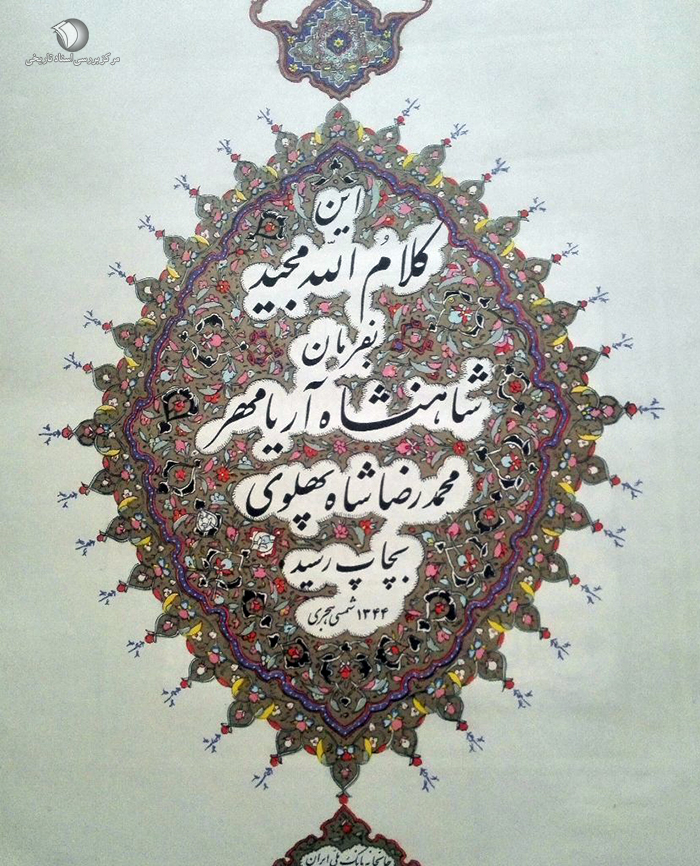 مرکز بررسی اسناد تاریخی
این
کلامُ اللّه مجید
بفرمان
شاهنشاه آریامهر
محمدرضا شاه پهلوی
بچاپ رسید
۱۳۴۴ شمسی هجری
چاپخانه بانک ملی ایران